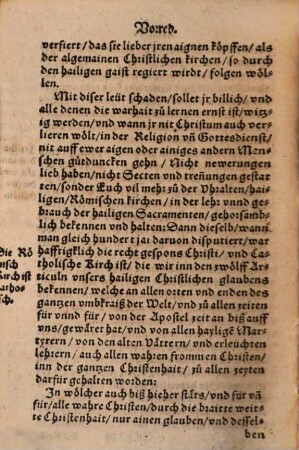 Vorred.
verfiert/das sie lieber jren aignen köpffen/als
der algemainen Christlichen kirchen/so durch
den hailigen gaist regiert wirdt/folgen wöl-
len.
Mit diser leüt schaden/sollet jr billich/vnd
alle denen die warhait zu lernen ernst ist/witz-
ig werden/vnd wann jr nit Christum auch ver-
lieren wölt/in der Religion vñ Gottesdienst/
nit auff ewer aigen oder ainiges andern Men-
schen gůtduncken gehn/Nicht newerungen
lieb haben/nicht Secten vnd treñungen gestat
ten/sonder Euch vil mehr zů der Vhralten/hai-
ligen/Römischen kirchen/in der lehr vnnd ge-
brauch der hailigen Sacramenten/gehorsãmb-
lich bekennen vnd halten: Dann dieselb/wann
man gleich hundert jai daruon disputiert/war
haffrigklich die recht gespons Christi/vnd Ca-
tholische Kirch ist/die wir inn den zwölff Ar-
ticuln vnsers hailigen Christlichen glaubens
bekennen/welche an allen orten vnd enden des
gantzen vmbkraiß der Welt/vnd zů allen zeiten
für vnnd für/von der Apostel zeit an biß auff
vns/gewäret hat/vnd von allen hayligẽ Mar-
tzrern/von den alten Vättern/vnd erleüchten
lehrern/auch allen wahren frommen Christen/
inn der gantzen Christenhait/zů allen zeyten
darfür gehalten worden:
Die Rö
misch
Kirch ist
Catho-
lisch.
In wölcher auch biß hieher stäts/vnd für vñ
für/alle wahre Christen/durch die braitte weit-
te Christenhait/nur ainen glauben/vnd dessel-
ben